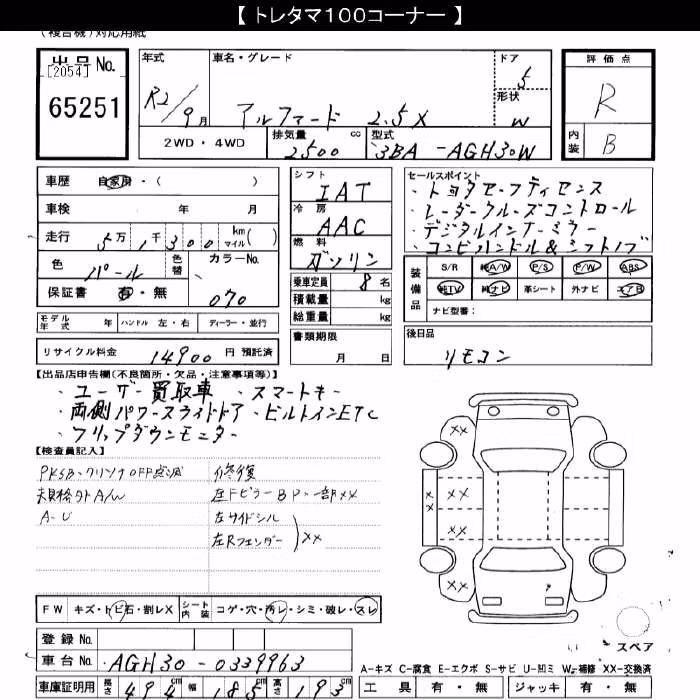 【 トレタマ100コーナー 】
(複合機)対応用紙
出品 No.
[2054]
65251
年式
R2/9月
車名・グレード
アルファード 2.5X
ドア
5
形状
W
評価点
R
内装
B
2WD・4WD
排気量
2500 cc
型式
3BA-AGH30W
車歴 自家用・( )
車検 年 月
走行 5万1千300 km マイル( )
色 パール
色替
カラーNo.
070
保証書 有・無
モデル年式 年 ハンドル 左・右 ディーラー・並行
リサイクル料金 14900 円 預託済
シフト
IAT
冷房
AAC
燃料
ガソリン
乗車定員 8 名
積載量 kg
総重量 kg
書類期限
月 日
セールスポイント
・トヨタセーフティセンス
・レーダークルーズコントロール
・デジタルインナーミラー
・コンビハンドル&シフトノブ
装備品
S/R 純A/W P/S P/W ABS
純TV 純ナビ 革シート 外ナビ エアB
ナビ型番:
後日品
リモコン
【出品店申告欄(不良箇所・欠品・注意事項等)】
・ユーザー買取車 ・スマートキー
・両側パワースライドドア ・ビルトインETC
・フリップダウンモニター
【検査員記入】
PKSB・クリソナOFF点滅
A-U
修復
左Fピラー BP 一部XX
左サイドシル
左Rフェンダー
XX
XX
XX
XX
XX
XX
FW キズ・トビ石・割レX
シート内装 コゲ・穴・汚レ・シミ・破レ・スレ
スペア
登録 No.
車台 No. AGH30-0339963
車庫証明用 長さ 494 cm 幅 185 cm 高さ 193 cm
A-キズ C-腐食 E-エクボ S-サビ U-凹ミ W-補修 XX-交換済
工具 有・無 ジャッキ 有・無